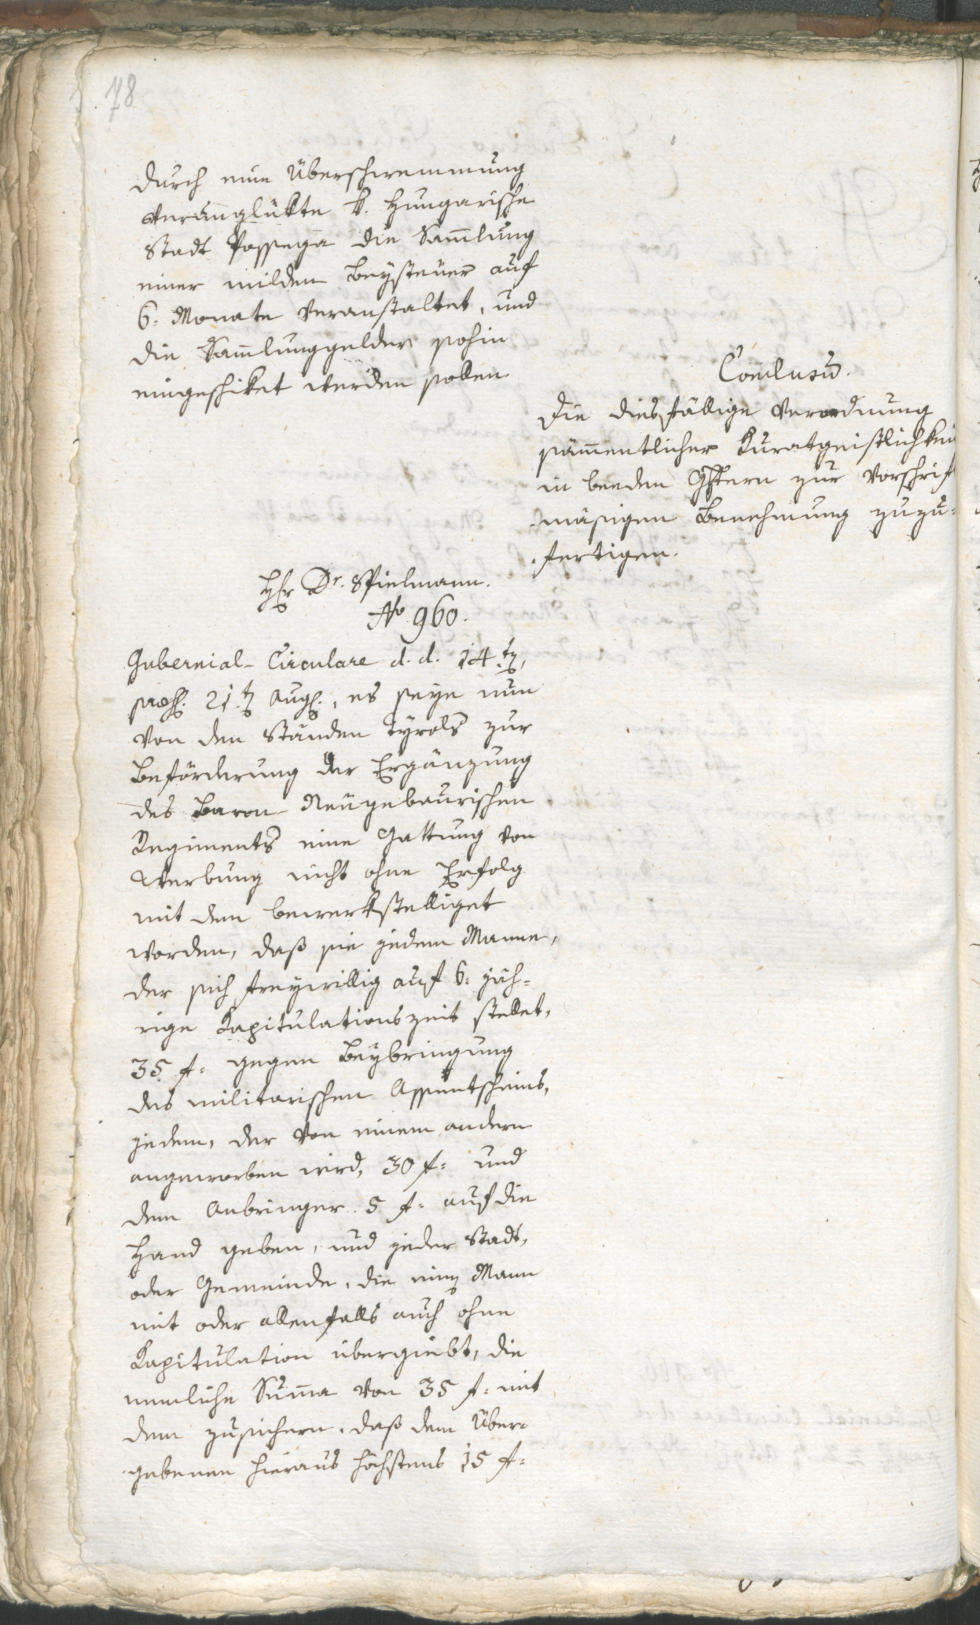 78
durch eine Überschwemmung
verunglükte k. Hungarische
Stadt Possega die Sam̅lung
einer milden Beysteuer auf
6. Monate veranstaltet, und
die Sam̅lunggelder sohin
eingeschiket werden sollen
Conclusũ.
Die diesfällige Verordnung
säm̅entlicher Kuratgeistlichkei
in beeden Ghtern zur Vorschrif
mäsigen Benehmung zuzu=
fertigen.
Hr Dr. Spielmann.
No 960.
Gubernial-Circulare d. d. 14t,
praes. 21t Aug., es seye nun
von den Ständen Tyrols zur
Beförderung der Ergänzung
des Baron Neugebaurischen
Regiments eine Gattung von
Werbung nicht ohne Erfolg
mit dem bewerkstelliget
worden, daß sie jedem Manne,
der sich freywillig auf 6. jäh=
rige Kapitulationszeit stellet,
35 f. gegen Beybringung
des militarischen Assentscheins,
jedem, der von einem andern
angeworben wird, 30 f. und
dem Anbringer 5 f. auf die
Hand geben, und jeder Stadt,
oder Gemeinde, die einen Mann
mit oder allenfalls auch ohne
Kapitulation übergiebt, die
nemliche Sum̅a von 35 f. mit
dem zusichern, daß dem Über=
gebenen hieraus höchstens 15 f.